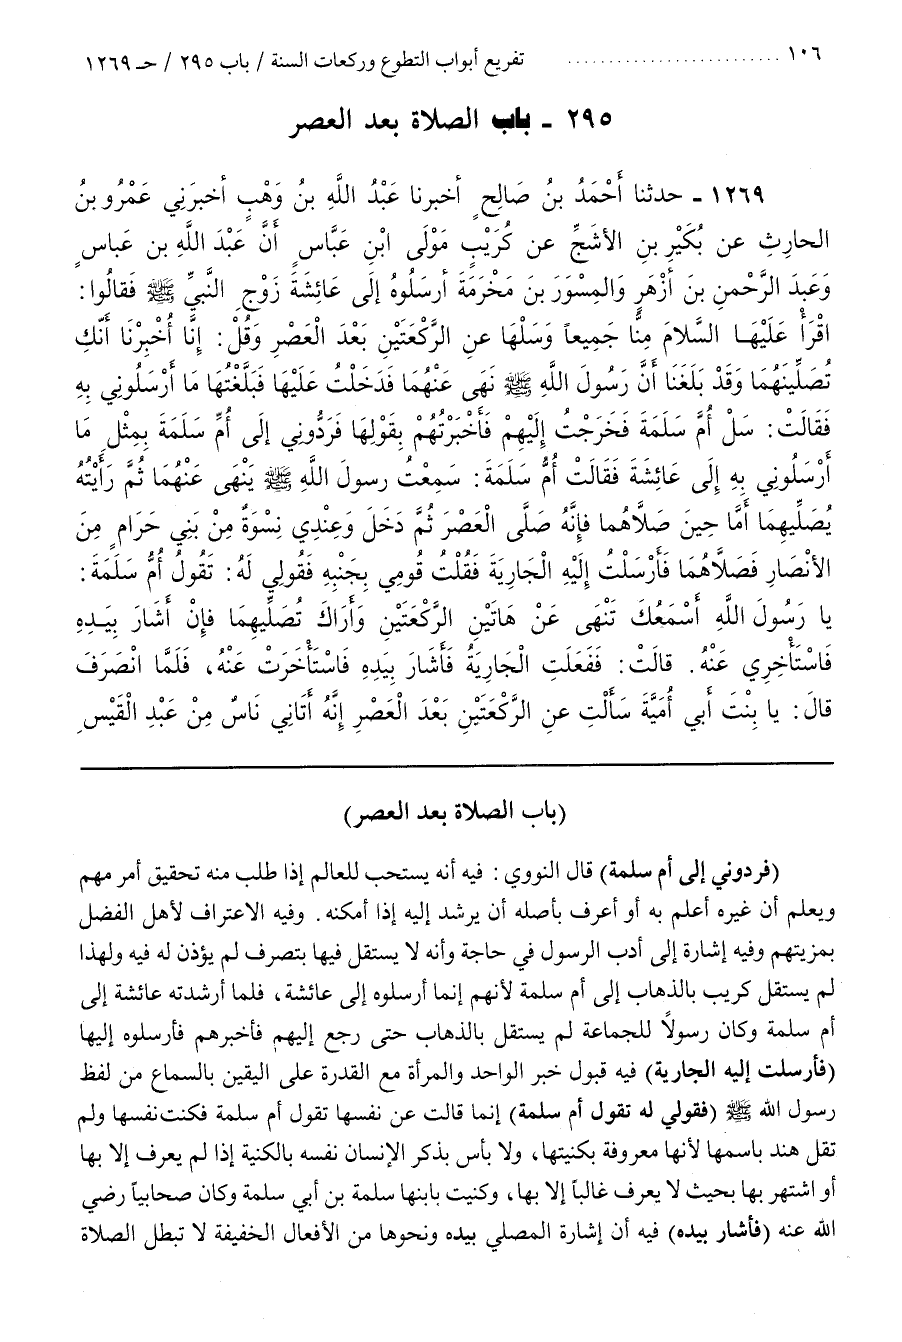 ١٠٦ .......................... تفريع أبواب التطوع وركعات السنة / باب ٢٩٥ / حـ ١٢٦٩
٢٩٥ ـ باب الصلاة بعد العصر
١٢٦٩ ـ حدثنا أَحْمَدُ بنُ صَالِحٍ أخبرنا عَبْدُ اللَّهِ بنُ وَهْبٍ أخبرَنِي عَمْرُو بنُ
الحارِثِ عن بُكَيْرِ بنِ الأشَجِّ عن كُرَيْبٍ مَوْلَى ابْنِ عَبَّاسٍ أَنَّ عَبْدَ اللَّهِ بن عَباسٍ
وَعَبدَ الرَّحْمنِ بن أزْهَرٍ وَالمِسْوَرَ بنَ مَخْرَمَةَ أرسَلُوهُ إلَى عَائِشَةَ زَوْجِ النَّبيِّ ﷺ فَقالُوا:
اقْرَأْ عَلَيْهَا السَّلامَ مِنَّا جَمِيعاً وَسَلْهَا عنِ الرَّكْعَتَيْنِ بَعْدَ الْعَصْرِ وَقُلْ: إنَّا أُخْبِرْنَا أَنَّكِ
تُصَلِّينَهُمَا وَقَدْ بَلَغَنَا أَنَّ رَسُولَ اللَّهِ ﷺ نَهَى عَنْهُمَا فَدَخَلْتُ عَلَيْهَا فَبَلَّغْتُهَا مَا أَرْسَلُوني بِهِ
فَقَالَتْ: سَلْ أُمَّ سَلَمةَ فَخَرَجْتُ إلَيْهِمْ فَأَخْبَرْتُهُمْ بِقَوْلِهَا فَرَدُّوني إلَى أُمِّ سَلَمَةَ بِمِثْلِ مَا
أَرْسَلُوني بِهِ إلَى عَائِشَةَ فَقَالَتْ أُمُّ سَلَمَةَ: سَمِعْتُ رسولَ اللَّهِ ﷺ يَنْهَى عَنْهُمَا ثُمَّ رَأَيْتُهُ
يُصَلِّيهِمَا أَمَّا حِينَ صَلَّاهُما فإنَّهُ صَلَّى الْعَصْرَ ثُمَّ دَخَلَ وَعِنْدِي نِسْوَةٌ مِنْ بَنِي حَرَامٍ مِنَ
الأنْصَارِ فَصَلَّاهُمَا فَأَرْسَلْتُ إلَيْهِ الْجَارِيَةَ فَقُلْتُ قُومِي بِجَنْبِهِ فَقُولِي لَهُ: تَقُولُ أُمُّ سَلَمَةَ:
يا رَسُولَ اللَّهِ أَسْمَعُكَ تَنْهَى عَنْ هَاتَيْنِ الرَّكْعَتَيْنِ وَأَرَاكَ تُصَلِّيهِمَا فإنْ أَشَارَ بِيَـدِهِ
فَاسْتَأْخِرِي عَنْهُ. قالَتْ: فَفَعَلَتِ الْجَارِيَةُ فَأَشَارَ بِيَدِهِ فَاسْتَأْخَرَتْ عَنْهُ، فَلَمَّا انْصَرَفَ
قالَ: يا بِنْتَ أَبي أُمَيَّةَ سَأَلْتِ عنِ الرَّكْعَتَيْنِ بَعْدَ الْعَصْرِ إنَّهُ أَتَانِي نَاسٌ مِنْ عَبْدِ الْقَيْسِ
(باب الصلاة بعد العصر)
(فردوني إلى أم سلمة) قال النووي: فيه أنه يستحب للعالم إذا طلب منه تحقيق أمر مهم
ويعلم أن غيره أعلم به أو أعرف بأصله أن يرشد إليه إذا أمكنه. وفيه الاعتراف لأهل الفضل
بمزيتهم وفيه إشارة إلى أدب الرسول في حاجة وأنه لا يستقل فيها بتصرف لم يؤذن له فيه ولهذا
لم يستقل كريب بالذهاب إلى أم سلمة لأنهم إنما أرسلوه إلى عائشة، فلما أرشدته عائشة إلى
أم سلمة وكان رسولاً للجماعة لم يستقل بالذهاب حتى رجع إليهم فأخبرهم فأرسلوه إليها
(فأرسلت إليه الجارية) فيه قبول خبر الواحد والمرأة مع القدرة على اليقين بالسماع من لفظ
رسول الله ﷺ (فقولي له تقول أم سلمة) إنما قالت عن نفسها تقول أم سلمة فكنت نفسها ولم
تقل هند باسمها لأنها معروفة بكنيتها، ولا بأس بذكر الإنسان نفسه بالكنية إذا لم يعرف إلا بها
أو اشتهر بها بحيث لا يعرف غالباً إلا بها، وكنيت بابنها سلمة بن أبي سلمة وكان صحابياً رضي
الله عنه (فأشار بيده) فيه أن إشارة المصلي بيده ونحوها من الأفعال الخفيفة لا تبطل الصلاة